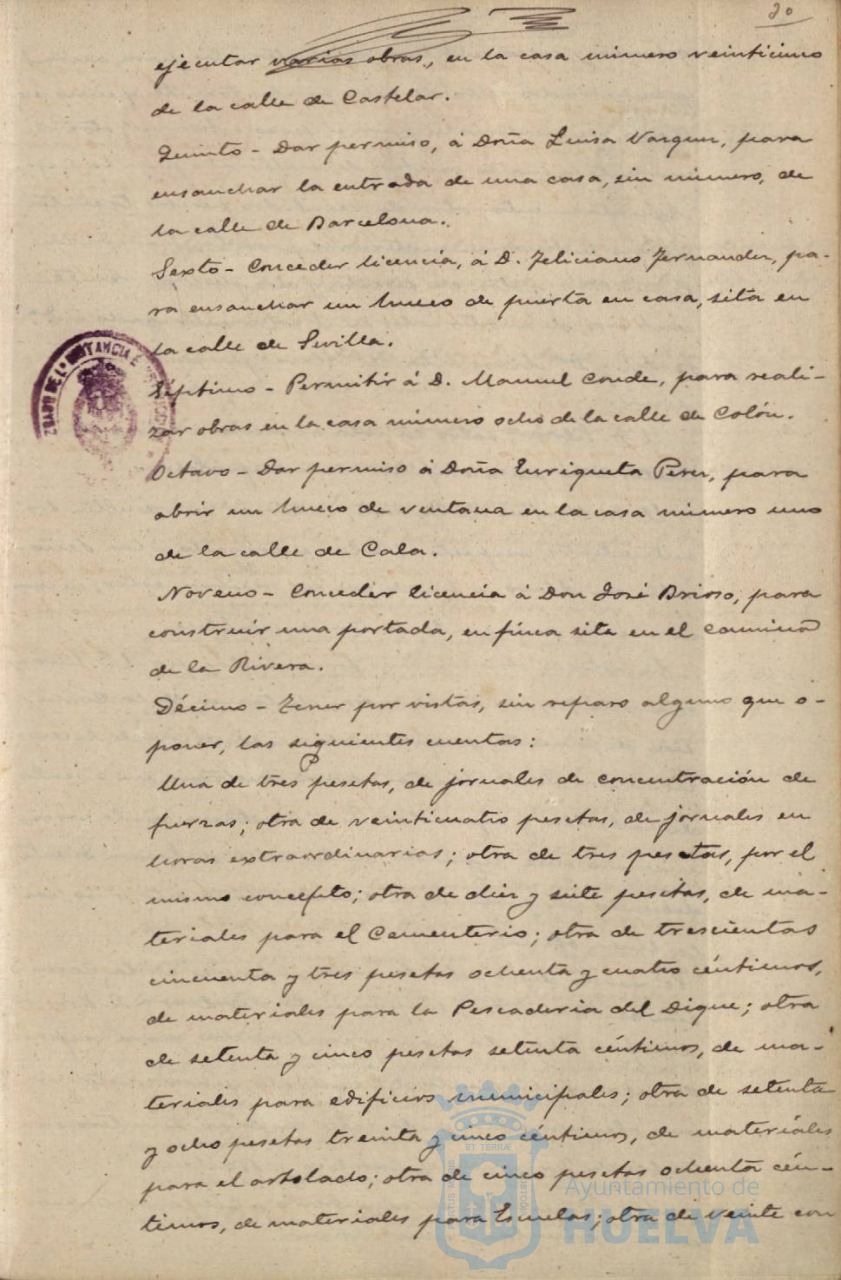 20
ejecutar varias obras, en la casa número veinticinco
de la calle de Castelar.
Quinto - Dar permiso, á Doña Luisa Vazquez, para
ensanchar la entrada de una casa, sin número, de
la calle de Barcelona.
Sexto - Conceder licencia, á D. Feliciano Fernandez, pa-
ra ensanchar un hueco de puerta en casa, sita en
la calle de Sevilla.
Séptimo - Permitir á D. Manuel Conde, para reali-
zar obras en la casa número ocho de la calle de Colón.
Octavo - Dar permiso á Doña Enriqueta Perez, para
abrir un hueco de ventana en la casa número uno
de la calle de Cala.
Noveno - Conceder licencia á Don José Brioso, para
construir una portada, en finca sita en el Camino
de la Rivera.
Décimo - Tener por vistas, sin reparo alguno que o-
poner, las siguientes cuentas:
Una de tres pesetas, de jornales de concentración de
fuerzas; otra de veinticuatro pesetas, de jornales en
horas extraordinarias; otra de tres pesetas, por el
mismo concepto; otra de diez y siete pesetas, de ma-
teriales para el Cementerio; otra de trescientas
cincuenta y tres pesetas ochenta y cuatro céntimos,
de materiales para la Pescaderia del Dique; otra
de setenta y cinco pesetas setenta céntimos, de ma-
teriales para edificios municipales; otra de setenta
y ocho pesetas treinta y cinco céntimos, de materiales
para el arbolado; otra de cinco pesetas ochenta cén-
timos, de materiales para Escuelas; otra de veinte con
Ayuntamiento de
HUELVA